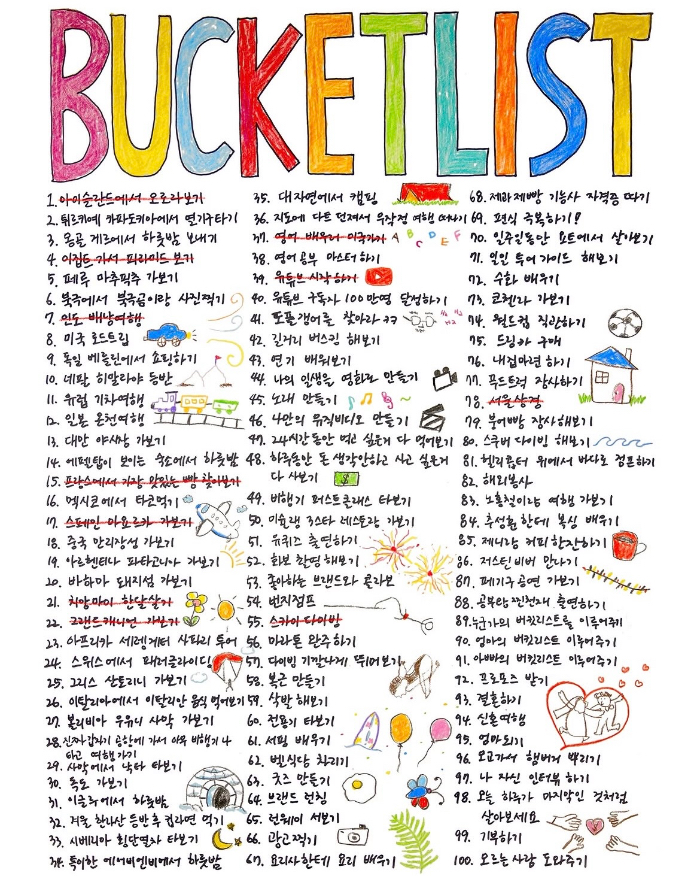 BUCKETLIST
1. 아이슬란드에서 오로라보기
2. 튀르키예 카파도키아에서 열기구타기
3. 몽골 게르에서 하룻밤 보내기
4. 이집트 가서 피라미드 보기
5. 페루 마추픽추 가보기
6. 북극에서 북극곰이랑 사진찍기
7. 인도 배낭여행
8. 미국 로드트립
9. 독일 베를린에서 쇼핑하기
10. 네팔 히말라야 등반
11. 유럽 기차여행
12. 일본 온천여행
13. 대만 야시장 가보기
14. 에펠탑이 보이는 숙소에서 하룻밤
15. 프랑스에서 가장 맛있는 빵 찾아보기
16. 멕시코에서 타코먹기
17. 스페인 마요르카 가보기
18. 중국 만리장성 가보기
19. 아르헨티나 파타고니아 가보기
20. 바하마 돼지섬 가보기
21. 치앙마이 한달살기
22. 그랜드캐니언 가보기
23. 아프리카 세렝게티 사파리 투어
24. 스위스에서 패러글라이딩
25. 그리스 산토리니 가보기
26. 이탈리아에서 이탈리안 음식 먹어보기
27. 볼리비아 우유니 사막 가보기
28. 진짜 갑자기 공항에 가서 아무 비행기나
타고 여행가기
29. 사막에서 낙타 타보기
30. 독도 가보기
31. 이글루에서 하룻밤
32. 겨울 한라산 등반 후 컵라면 먹기
33. 시베리아 횡단열차 타보기
34. 특이한 에어비엔비에서 하룻밤
35. 대자연에서 캠핑
36. 지도에 다트 던져서 무작정 여행 떠나기
37. 영어 배우러 외국가기
A B C D E F
38. 영어공부 마스터하기
39. 유튜브 시작하기
40. 유튜브 구독자 100만명 달성하기
41. 도플갱어를 찾아라 ㅋㅋ
42. 길거리 버스킹 해보기
43. 연기 배워보기
44. 나의 일생을 영화로 만들기
45. 노래 만들기
46. 나만의 뮤직비디오 만들기
47. 24시간동안 먹고 싶은거 다 먹어보기
48. 하루동안 돈 생각안하고 사고 싶은거
다 사보기
$
49. 비행기 퍼스트클래스 타보기
50. 미슐랭 3스타 레스토랑 가보기
51. 유퀴즈 출연하기
52. 화보 촬영 해보기
53. 좋아하는 브랜드와 콜라보
54. 번지점프
55. 스카이다이빙
56. 마라톤 완주하기
57. 다이빙 기깔나게 뛰어보기
58. 복근 만들기
59. 삭발 해보기
60. 전용기 타보기
61. 서핑 배우기
62. 벌식당 차리기
63. 굿즈 만들기
64. 브랜드 런칭
65. 런웨이 서보기
66. 광고찍기
67. 요리사한테 요리 배우기
68. 제과제빵 기능사 자격증 따기
69. 편식 극복하기!
70. 일주일동안 요트에서 살아보기
71. 일일 투어가이드 해보기
72. 수화 배우기
73. 코첼라 가보기
74. 월드컵 직관하기
75. 드림카 구매
76. 내집마련 하기
77. 푸드트럭 장사하기
78. 서울상경
79. 붕어빵 장사해보기
80. 스쿠버다이빙 해보기
81. 헬리콥터 위에서 바다로 점프하기
82. 해외봉사
83. 노홍철이랑 여행 가보기
84. 추성훈한테 복싱 배우기
85. 제니랑 커피한잔하기
86. 저스틴비버 만나기
87. 페기구 공연 가보기
88. 공부왕찐천재 출연하기
89. 누군가의 버킷리스트를 이루어주기
90. 엄마의 버킷리스트 이루어주기
91. 아빠의 버킷리스트 이루어주기
92. 프로포즈 받기
93. 결혼하기
94. 신혼여행
95. 엄마되기
96. 모교가서 햄버거 뿌리기
97. 나 자신 인터뷰 하기
98. 오늘 하루가 마지막인 것처럼
살아보세요
99. 기부하기
100. 모르는사람 도와주기